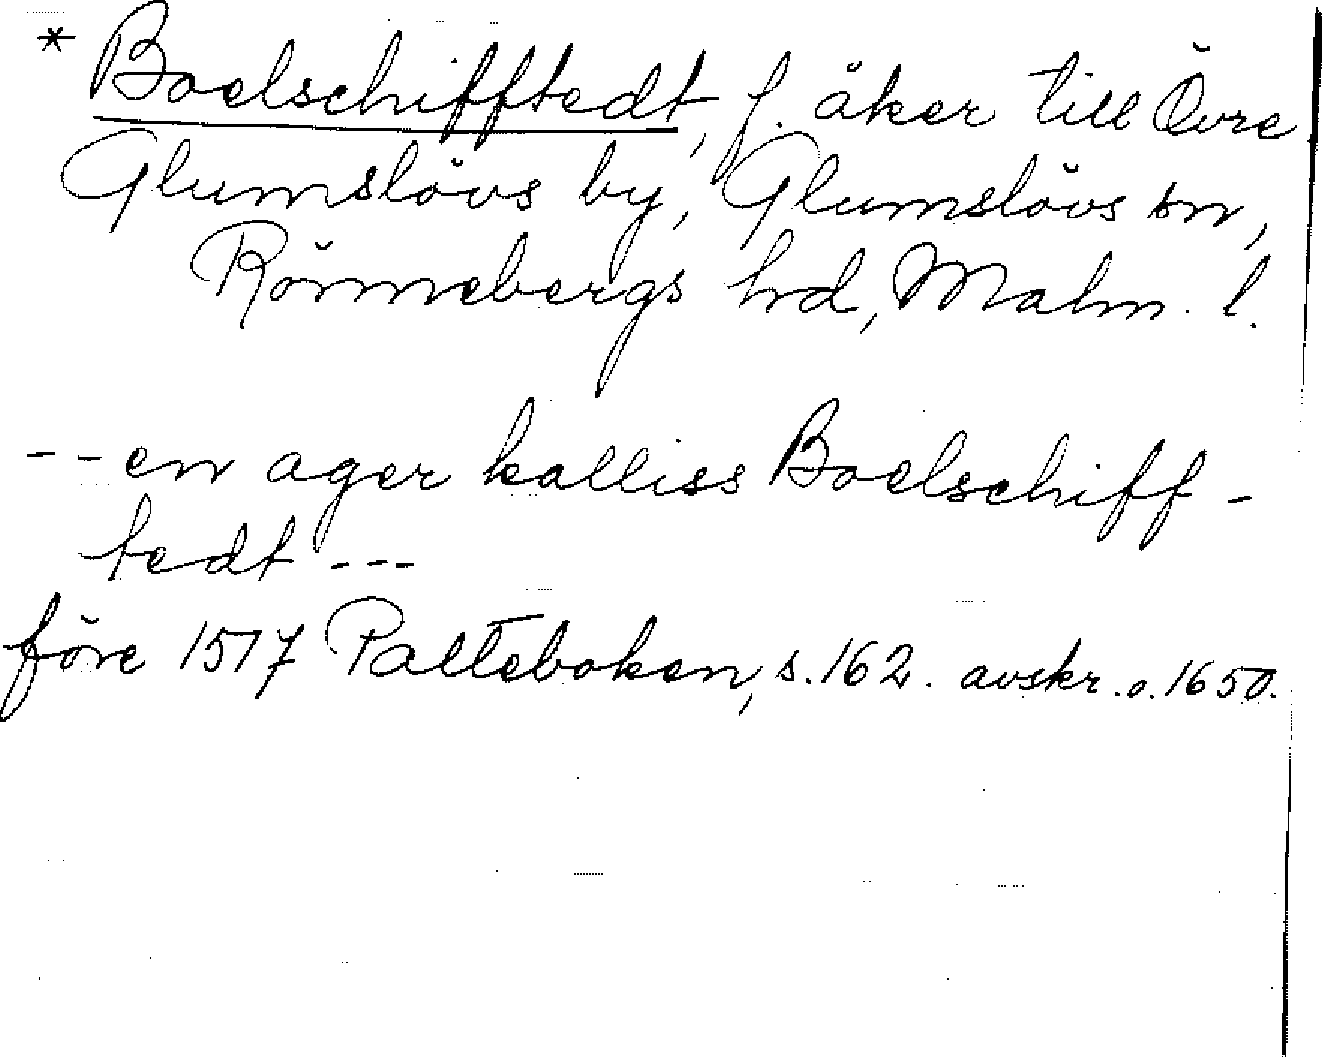 * Boelschifftedt, f. åker till Övre
Glumslövs by, Glumslövs sn,
Rönnebergs hd, Malm. l.
--en ager kalliss Boelschiff-
tedt ---
före 1517 Palteboken, s. 162. avskr. o. 1650.